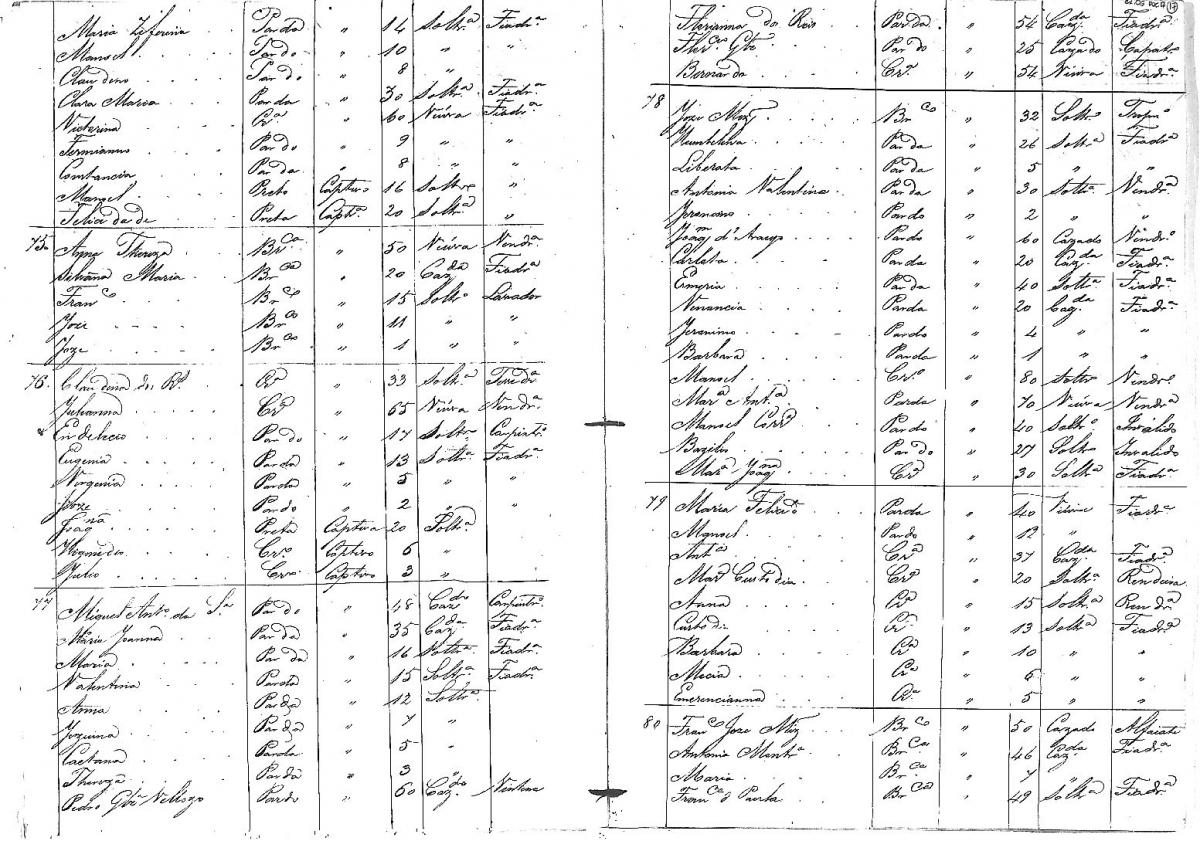 Maria Zeferina Parda " 14 Soltrª Fiadrª
Manoel Pardo " 10 " "
Claudeno Pardo " 8 "
Clara Maria Parda " 30 Soltrª Fiadrª
Victorina Crª " 60 Viuva Fiadrª
Fermianno Pardo " 9 " "
Constancia Parda " 8 " "
Manoel Preto Captivo 16 Soltro "
Felicidade Preta Captª 20 Soltrª "
75 Anna Thereza Brca " 50 Viuva Vendrª
Maria Brca " 20 Cazda Fiadrª
Franco Brco " 15 Soltro Lavador
Joze Brco " 11 " "
Joze Brco " 1 " "
76 Claudina de Rs Crª " 33 Soltrª
Julianna Crª " 65 Viuva Vendrª
Pardo " 17 Soltro Carpintro
Eugenia Parda " 13 Soltrª Fiadrª
Virgenia Parda " 5 " "
Joze Pardo " 2 " "
Joaqna Preta Captiva 20 Soltrª
Cro Captivo 6 "
Julio Cro Captivo 3 "
77 Miguel Anto da Sª Pardo " 48 Cazdo Carpintro
Maria Joanna Parda " 35 Cazda Fiadrª
Maria Parda " 16 Soltrª Fiadrª
Valentina Parda " 15 Soltrª Fiadrª
Anna Parda " 12 Soltrª
Jozuina Parda " 7 "
Caetana Parda " 5 "
Thereza Parda " 3
Pedro Glz Vellozo Pardo " 60 Cazdo
dos Reis Parda " 54 Cazda Fiadrª
Pardo " 25 Cazado Sapatro
Bernarda Crª " 54 Viuva Fiadrª
78 Joze Brco " 32 Soltro
Parda " 26 Soltrª Fiadrª
Liberata Parda " 5 " "
Antonia Valentina Parda " 30 Soltrª Vendrª
Pardo " 2 " "
Joaqm d'Araujo Pardo " 60 Cazado Vendro
Parda " 20 Cazda Fiadrª
Parda " 40 Soltrª Fiadrª
Venancia Parda " 20 Cazda Fiadrª
Jeronimo Pardo " 4 " "
Barbara Parda " 1 " "
Manoel Cro " 80 Soltro Vendro
Marª Antª Parda " 70 Viuva Vendrª
Manoel Corrª Pardo " 40 Soltro Invalido
Bazilio Pardo " 27 Soltro Invalido
Marª Joaqna Crª " 30 Soltrª Fiadrª
79 Maria Parda " 40 Viuva Fiadrª
Manoel Pardo " 12 "
Antª Crª " 37 Cazda Fiadrª
Marª Custodia Crª " 20 Soltrª Rendeira
Anna Crª " 15 Soltrª Rendrª
Crª " 13 Soltrª Fiadrª
Barbara Crª " 10 " "
Micia Crª " 6 " "
Emerencianna Crª " 5 " "
80 Franco Joze Brco " 50 Cazado Alfaiate
Antonia Montrª Brca " 46 Cazda Fiadrª
Maria Brca " 7 "
Franca de Paula Brca " 49 Soltrª Fiadrª